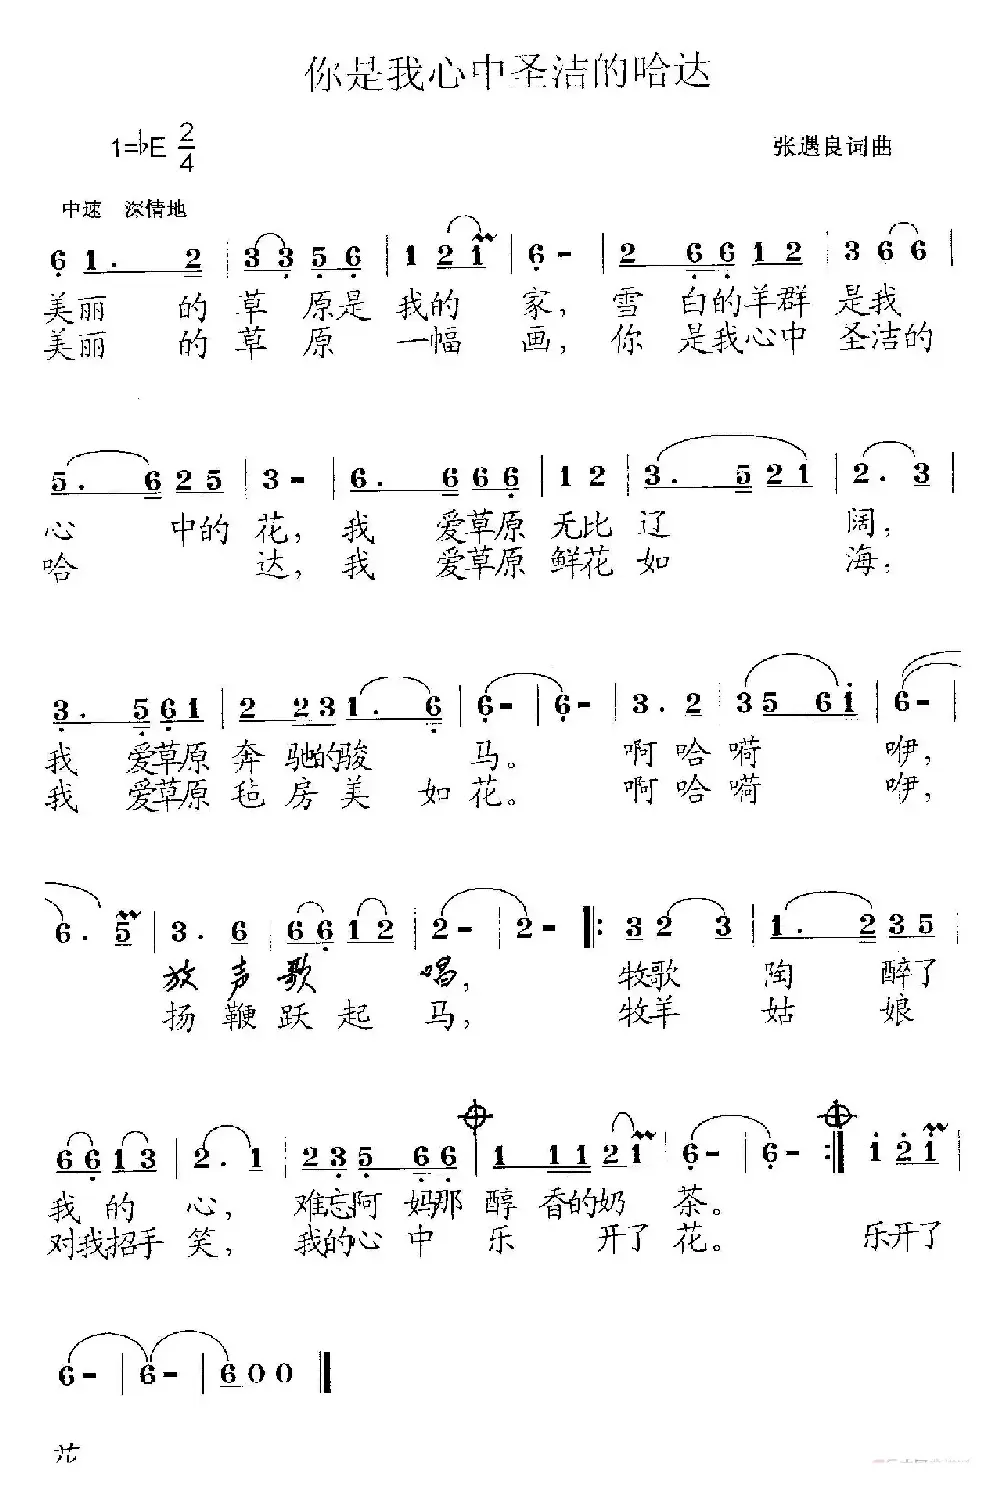 你是我心中圣洁的哈达
1=♭E 2/4
张遇良词曲
中速 深情地
6 1. 2 | 3 3 5 6 | 1 2 1 | 6 - | 2 6 6 1 2 | 3 6 6 |
美丽 的 草 原是 我的 家, 雪 白的羊群 是我
美丽 的 草 原 一幅 画, 你 是我心中 圣洁的
5. 6 2 5 | 3 - | 6. 6 6 6 | 1 2 | 3. 5 2 1 | 2. 3 |
心 中的 花, 我 爱草原 无比 辽 阔,
哈 达, 我 爱草原 鲜花 如 海,
3. 5 6 1 | 2 2 3 1. 6 | 6 - | 6 - | 3. 2 | 3 5 6 1 | 6 - |
我 爱草原 奔 驰的骏 马。 啊 哈 嗬 咿,
我 爱草原 毡 房 美 如 花。 啊 哈 嗬 咿,
6. 5 | 3. 6 | 6 6 1 2 | 2 - | 2 - ‖: 3 2 3 | 1. 2 3 5 |
放 声 歌 唱, 牧歌 陶 醉了
扬 鞭 跃 起 马, 牧羊 姑 娘
6 6 1 3 | 2. 1 | 2 3 5 6 6 | 1 1 1 2 1 | 6 - | 6 - :‖ 1 2 1 |
我 的 心, 难忘阿 妈那 醇 香的奶 茶。
对我招手 笑, 我的心 中 乐 开了 花。 乐开了
6 - | 6 - | 6 0 0 ‖
花